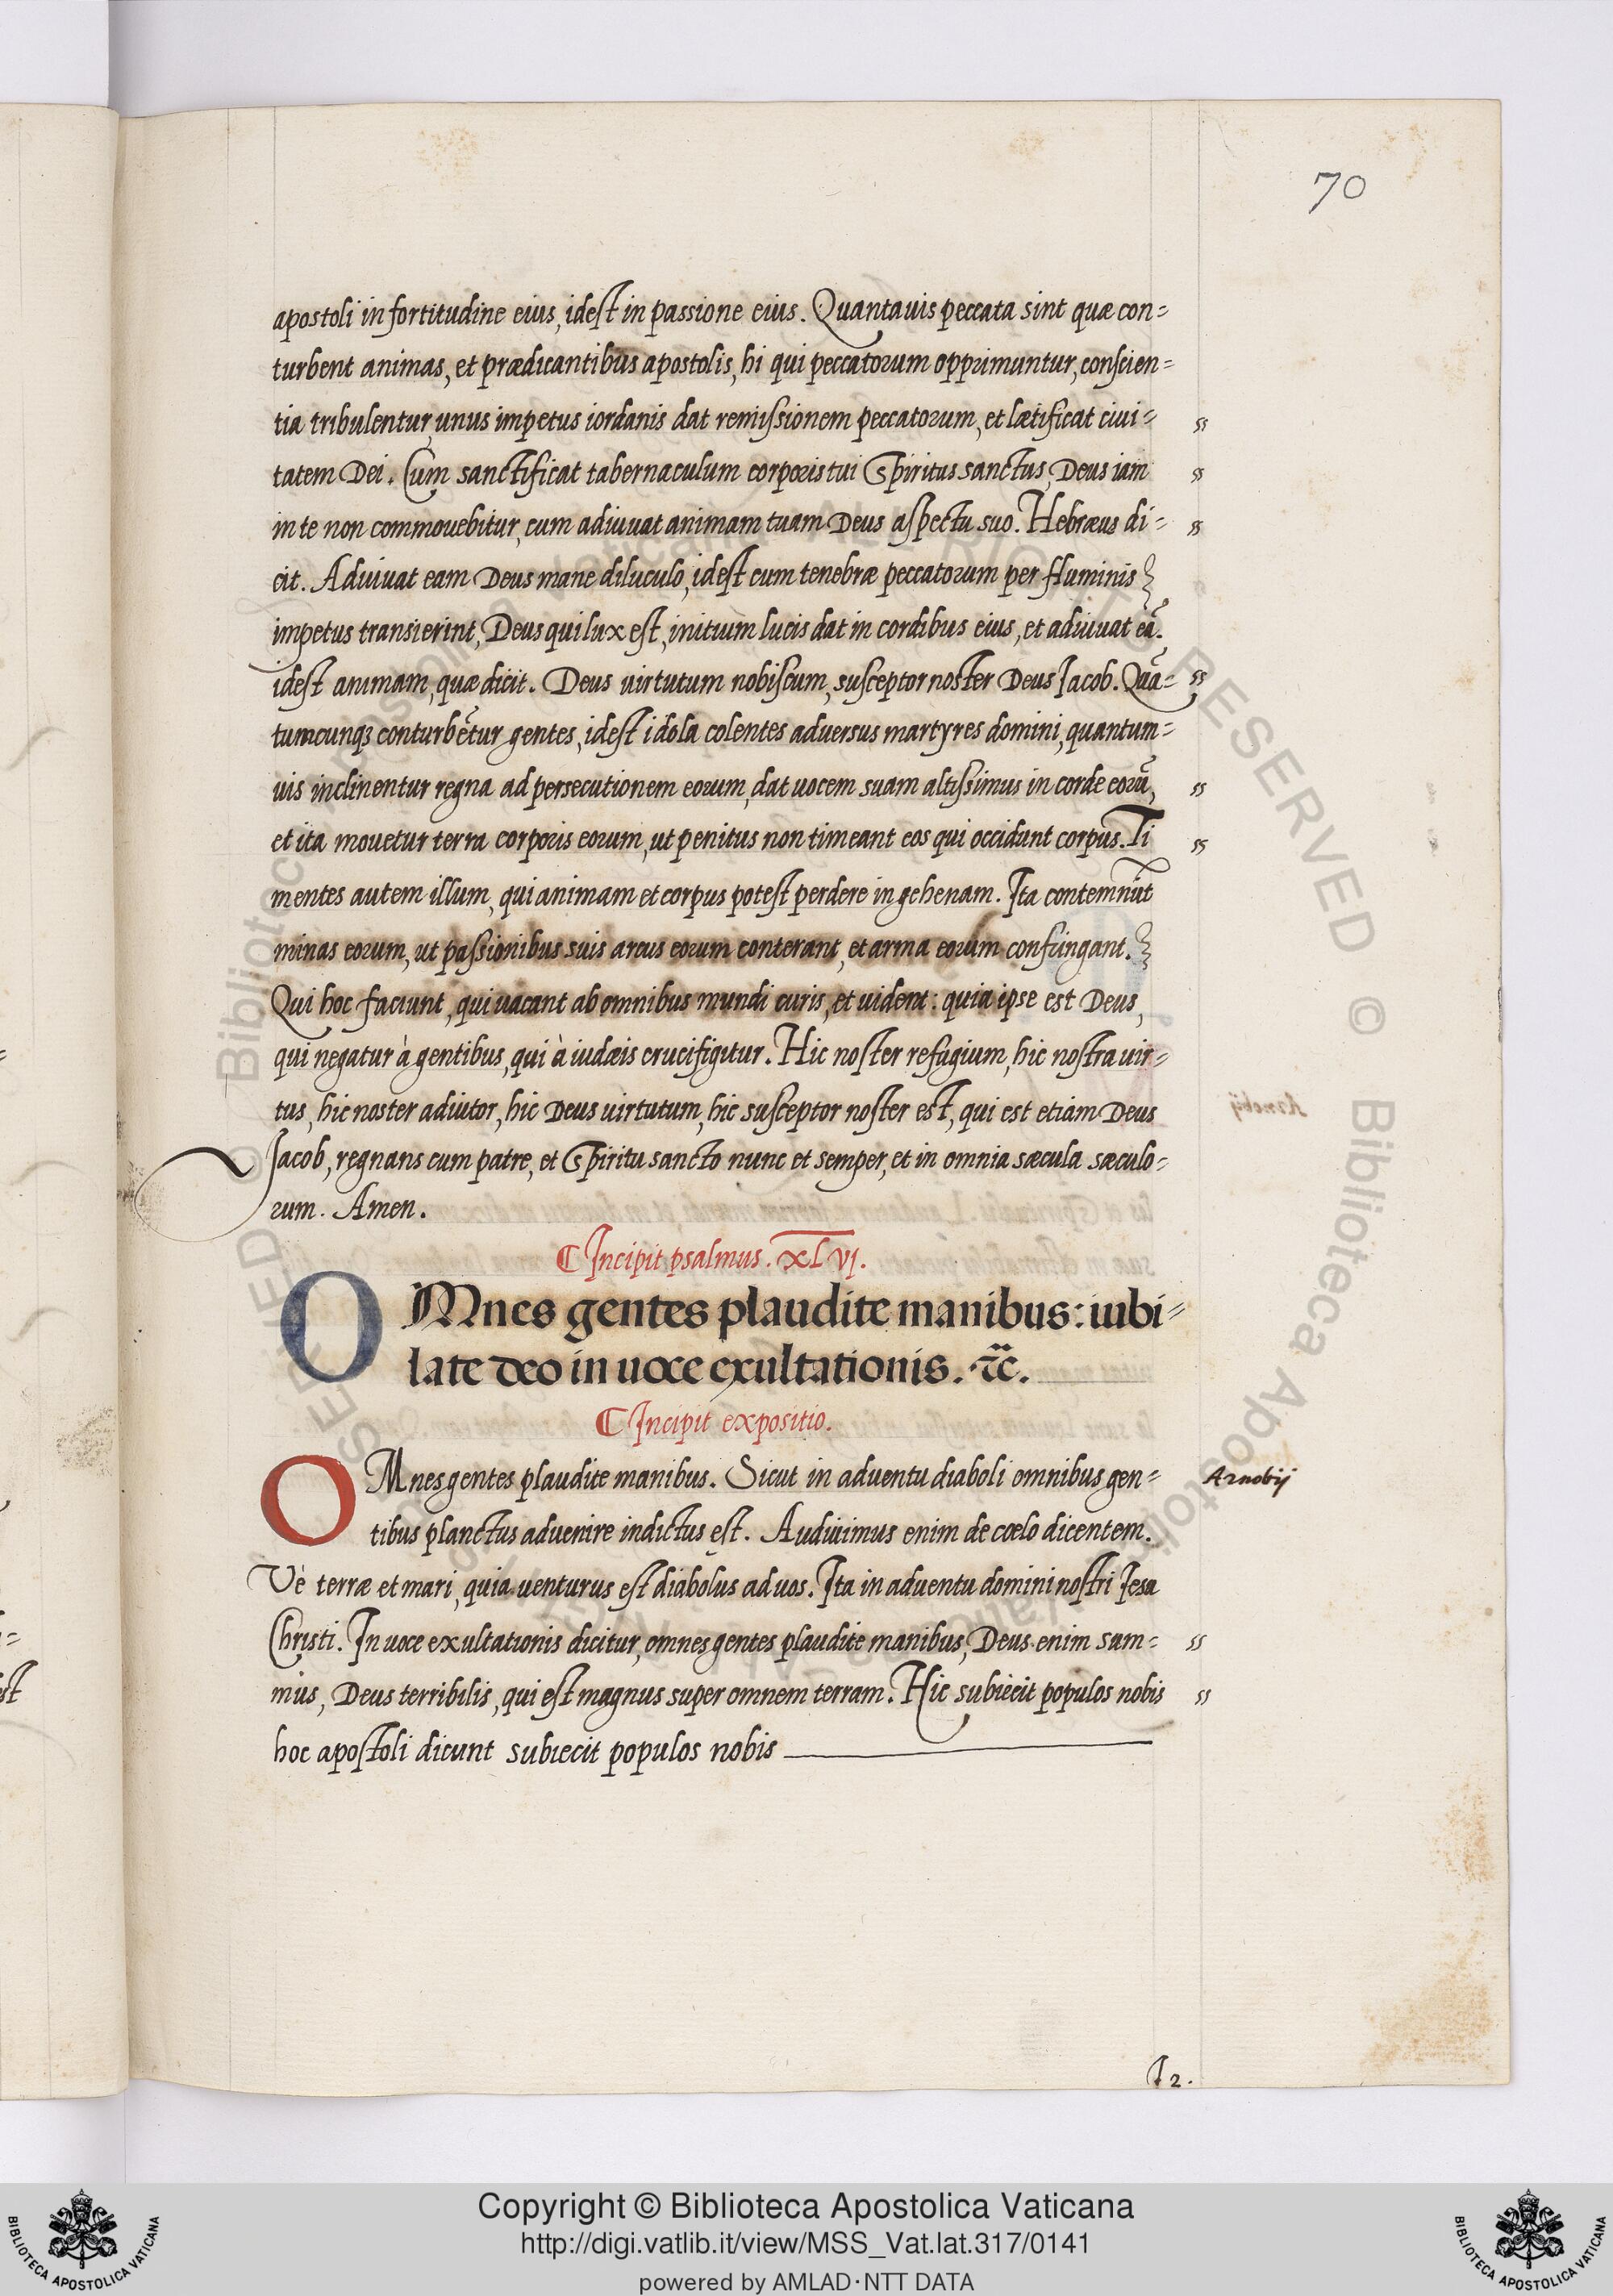 70
apostoli in fortitudine eius, idest in passione eius. Quantauis peccata sint quæ con=
turbent animas, et prædicantibus apostolis, hi qui peccatorum opprimuntur, conscien=
tia tribulentur, unus impetus iordanis dat remissionem peccatorum, et lætificat ciui=
tatem Dei. Cum sanctificat tabernaculum corporis tui Spiritus sanctus, Deus iam
in te non commouebitur, cum adiuuat animam tuam Deus aspectu suo. Hebræus di=
cit. Adiuuat eam Deus mane diluculo, idest cum tenebræ peccatorum per fluminis
impetus transierint, Deus qui lux est, initium lucis dat in cordibus eius, et adiuuat eã.
idest animam, quæ dicit. Deus uirtutum nobiscum, susceptor noster Deus Jacob. Quã=
tumcunqꝫ conturbẽtur gentes, idest idola colentes aduersus martyres domini, quantum=
uis inclinentur regna ad persecutionem eorum, dat uocem suam altissimus in corde eorũ,
et ita mouetur terra corporis eorum, ut penitus non timeant eos qui occidunt corpus. Ti
mentes autem illum, qui animam et corpus potest perdere in gehenam. Ita contemnũt
minas eorum, ut passionibus suis arcus eorum conterant, et arma eorum confringant.
Qui hoc faciunt, qui uacant ab omnibus mundi curis, et uident: quia ipse est Deus,
qui negatur à gentibus, qui à iudæis crucifigitur. Hic noster refugium, hic nostra uir=
tus, hic noster adiutor, hic Deus uirtutum, hic susceptor noster est, qui est etiam Deus
Jacob, regnans cum patre, et Spiritu sancto nunc et semper, et in omnia sæcula sæculo=
rum. Amen.
¶ Incipit psalmus. xlvj.
OMnes gentes plaudite manibus: iubi=
late deo in uoce exultationis. ⁊c̃.
¶ Incipit expositio.
OMnes gentes plaudite manibus. Sicut in aduentu diaboli omnibus gen=
Arnobij
tibus planctus aduenire indictus est. Audiuimus enim de cœlo dicentem.
Vè terræ et mari, quia uenturus est diabolus ad uos. Ita in aduentu domini nostri Jesu
Christi. In uoce exultationis dicitur, omnes gentes plaudite manibus, Deus enim sum=
mus, Deus terribilis, qui est magnus super omnem terram. Hic subiecit populos nobis
hoc apostoli dicunt subiecit populos nobis
J2.
Copyright © Biblioteca Apostolica Vaticana
http://digi.vatlib.it/view/MSS_Vat.lat.317/0141
powered by AMLAD·NTT DATA
BIBLIOTECA APOSTOLICA VATICANA
BIBLIOTECA APOSTOLICA VATICANA